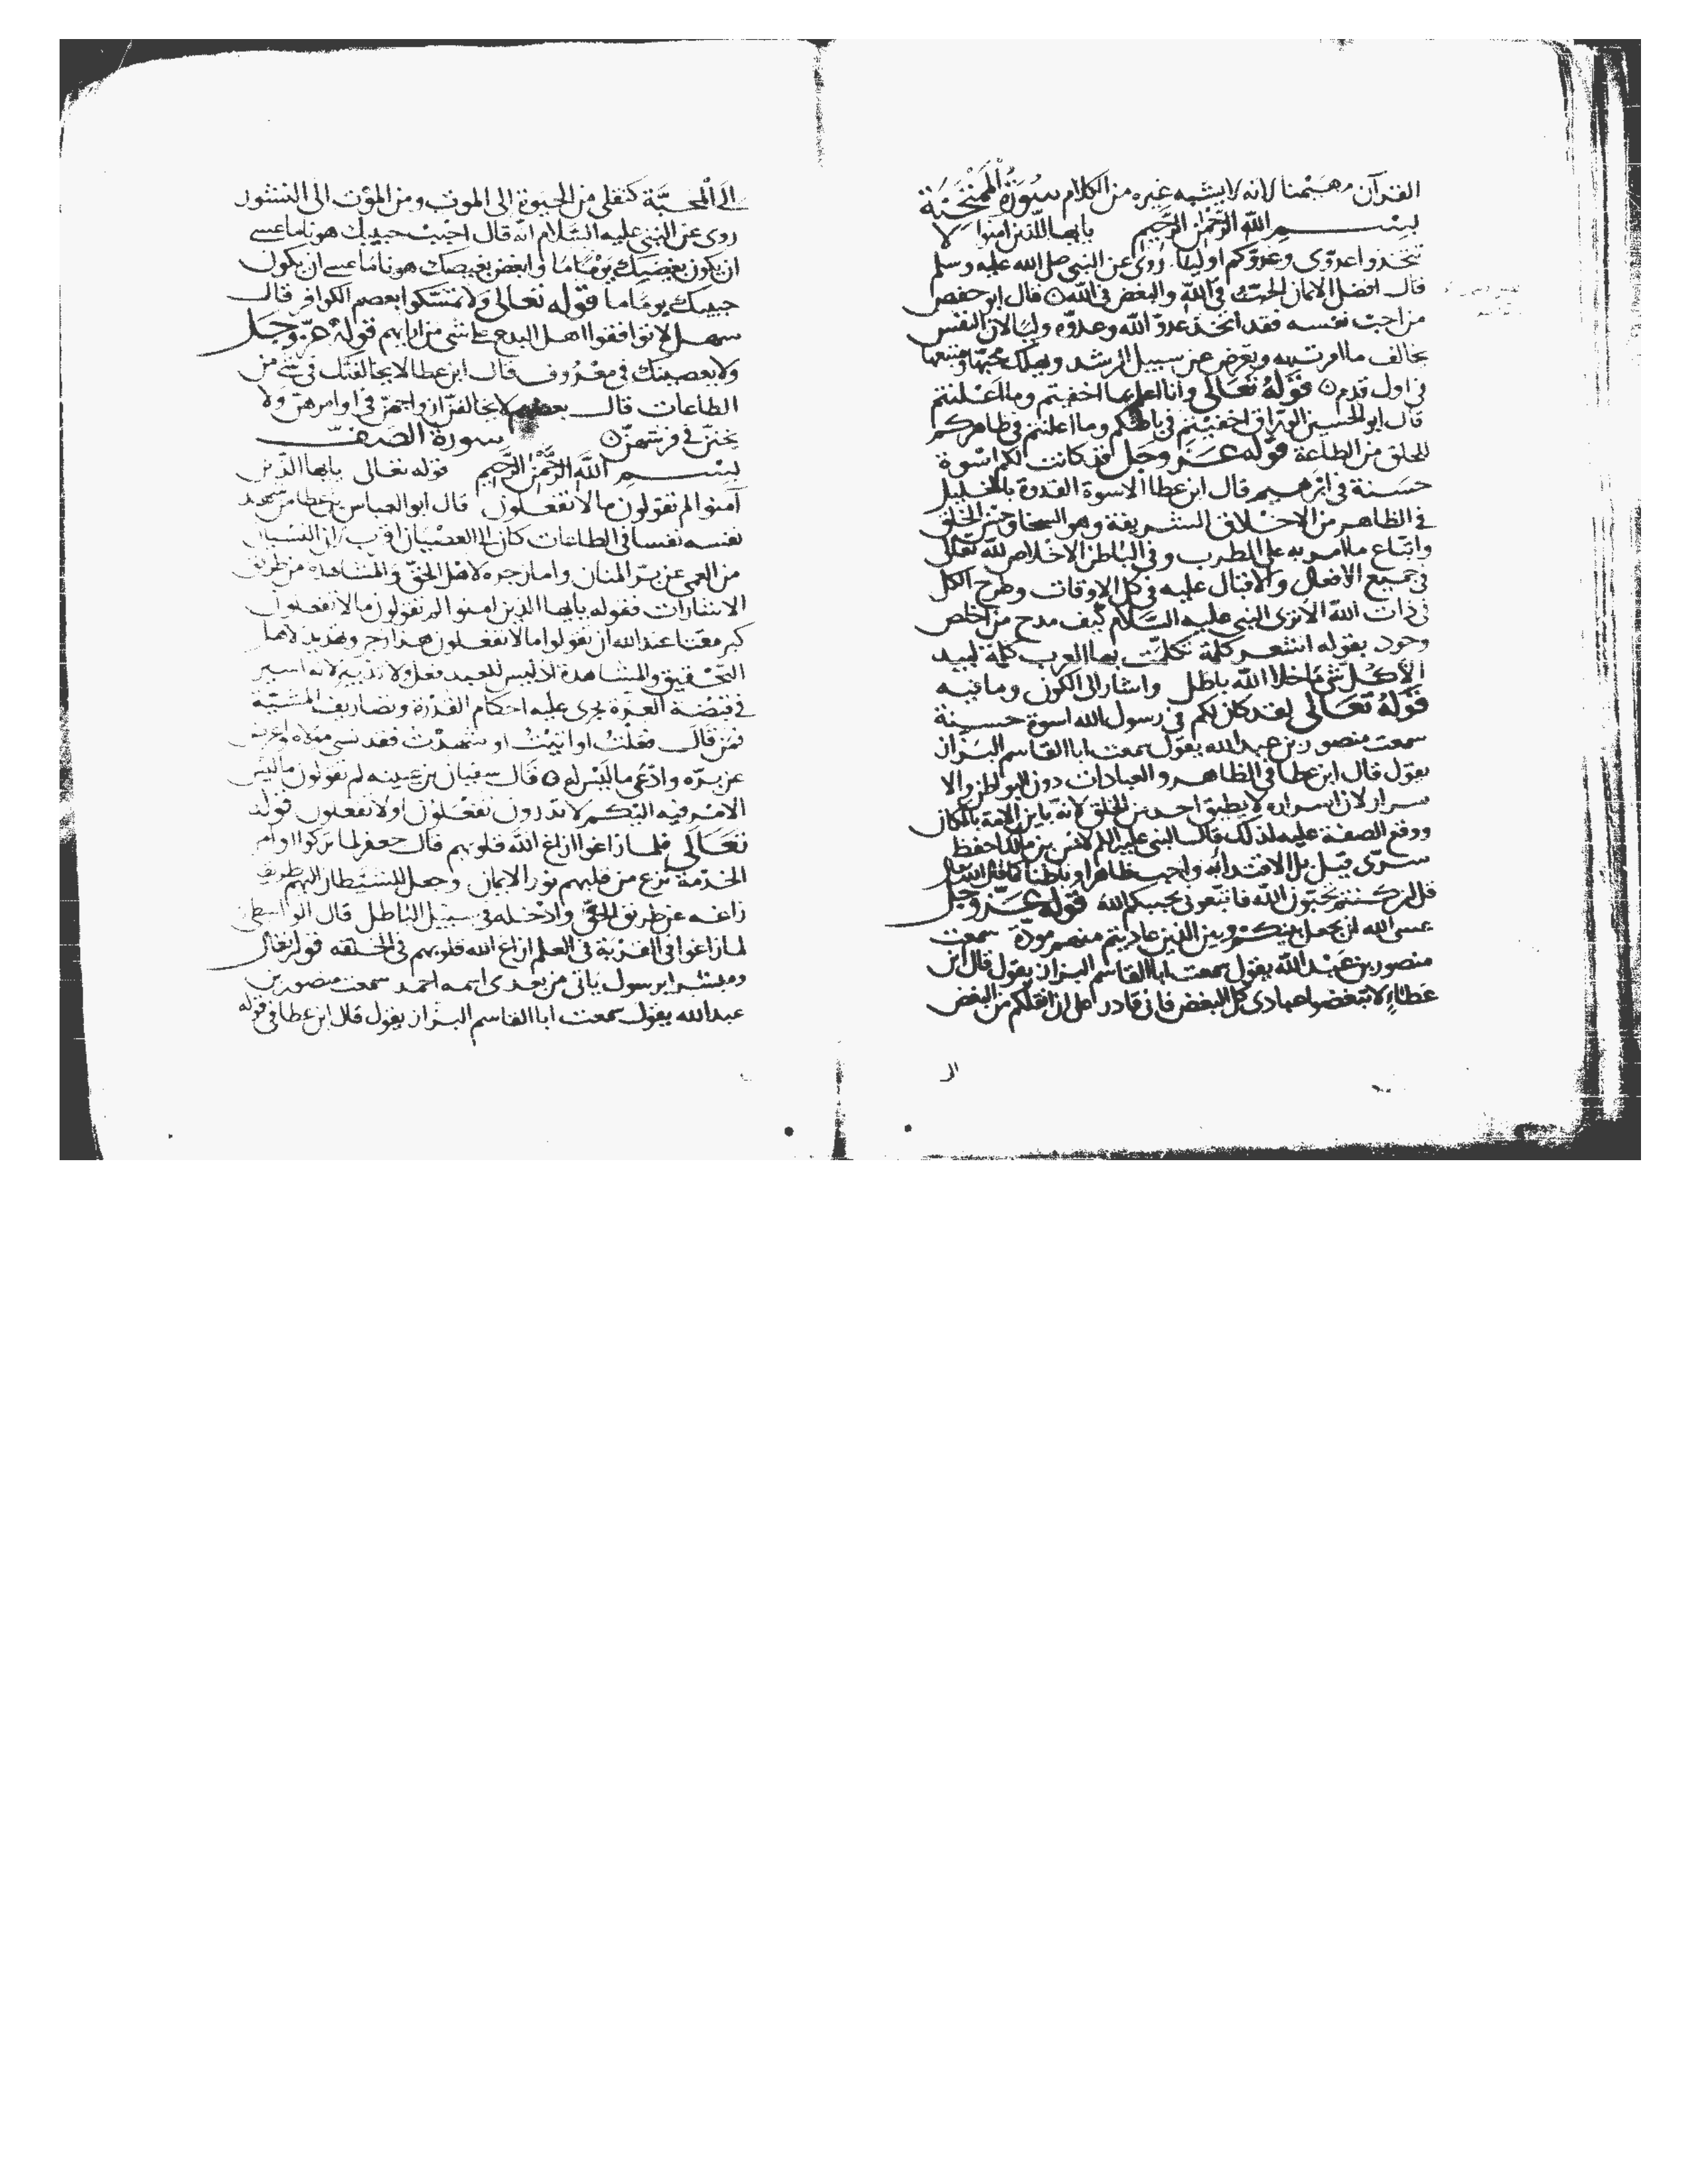 القرآن مهيمنا لانه لا يشبهه غيره من الكلام سورة الممتحنة
بسم الله الرحمن الرحيم يا ايها الذين امنوا لا
تتخذوا عدوى وعدوكم اوليا روى عن النبى صلى الله عليه وسلم
قال افضل الايمان الحب فى الله والبغض فى الله ۝ قال ابو حفص
من احب نفسه فقد اتخذ عدو الله وعدوه وليا لان النفس
تخالف ما امرت به وتعرض عن سبيل الرشد وتهلك محبها ومتبعها
فى اول قدم ۝ قوله تعالى وانا اعلم بما اخفيتم وما اعلنتم
قال ابو الحسين الوراق اخفيتم فى باطنكم وما اعلنتم فى ظاهركم
للخلق من الطاعة قوله عز وجل قد كانت لكم اسوة
حسنة فى ابرهيم قال ابن عطا الاسوة القدوة بالخليل
فى الظاهر من الاخلاق الشريفة وهو السخا وحسن الخلق
واتباع ما امر به على الطرب وفى الباطن الاخلاص لله تعالى
فى جميع الافعال والاقبال عليه فى كل الاوقات وطرح الكل
فى ذات الله الا ترى النبى عليه السلام كيف مدح من اخلص
وجود بقوله اشعر كلمة تكلمت بها العرب كلمة لبيد
الا كل شئ ما خلا الله باطل واشار الى الكون وما فيه
قوله تعالى لقد كان لكم فى رسول الله اسوة حسنة
سمعت منصور بن عبد الله يقول سمعت ابا القاسم البزاز
يقول قال ابن عطا فى الظاهر والعبادات دون البواطن والا
سرار لان اسراره لا يطيق احد من الخلق لانه باين الامة بالمكان
ووقع الصفة عليه لذلك قال النبى عليه السلم لانس بن مالك احفظ
سرى قيل بل الاقتداء به واجب ظاهرا وباطنا كما قال الله تعالى
قل ان كنتم تحبون الله فاتبعونى يحببكم الله قوله عز وجل
عسى الله ان يجعل بينكم وبين الذين عاديتم منهم مودة سمعت
منصور بن عبد الله يقول سمعت ابا القاسم البزاز يقول قال ابن
عطاء لا تبغضوا عبادى كل البغض فانى قادر على ان انقلكم من البغض
الى
الى المحبة كنقلى من الحيوة الى الموت ومن الموت الى النشور
روى عن النبى عليه السلام انه قال احبب حبيبك هونا ما عسى
ان يكون بغيضك يوما ما وابغض بغيضك هونا ما عسى ان يكون
حبيبك يوما ما قوله تعالى ولا تمسكوا بعصم الكوافر قال
سهل لا توافقوا اهل البدع على شى من ارايهم قوله عز وجل
ولا يعصينك فى معروف قال ابن عطا لا يخالفنك فى شى من
الطاعات قال بعضهم لا يخالفن ازواجهن فى اوامرهن ولا
يخنن فى فرشهن ۝ سورة الصف
بسم الله الرحمن الرحيم قوله تعالى يا ايها الذين
آمنوا لم تقولون ما لا تفعلون قال ابو العباس بن عطا من شهد
نفسه نفسا فى الطاعات كان الى العصيان اقرب لان النسيان
من العمى عن بر المنان واما زجره لاهل الحق والمشاهدة من طريق
الاشارات فقوله يا ايها الذين امنوا لم تقولون ما لا تفعلون
كبر مقتا عند الله ان تقولوا ما لا تفعلون هذا زجر وتهديد لاهل
التحقيق والمشاهدة اذ ليس للعبد فعل ولا تدبير لانه اسير
فى قبضة العزة يجرى عليه احكام القدرة وتصاريف المشيئة
فمن قال فعلت او اتيت او شهدت فقد نسى مولاه واعرض
عن بره وادعى ما ليس له ۝ قال سفيان بن عيينه لم تقولون ما ليس
الامر فيه اليكم لا تدرون تفعلون او لا تفعلون قوله
تعالى فلما زاغوا ازاغ الله قلوبهم قال جعفر لما تركوا اوامر
الخدمة نزع من قلبهم نور الايمان وجعل للشيطان اليهم طريقا
زاغه عن طريق الحق وادخله فى سبيل الباطل قال الواسطى
لما زاغوا فى القربة فى العلم ازاغ الله قلوبهم فى الخلقه قوله تعالى
ومبشرا برسول ياتى من بعدى اسمه احمد سمعت منصور بن
عبد الله يقول سمعت ابا القاسم البزاز يقول قال ابن عطا فى قوله